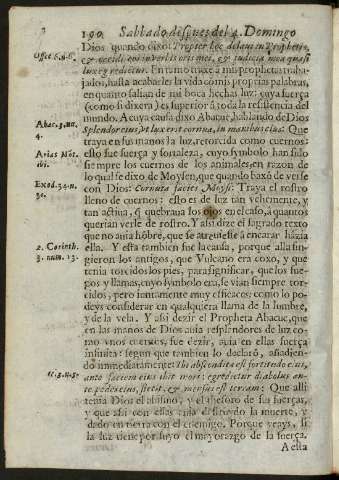 190. Sabbado despues del 4. Domingo
Dios quando dixo: Propter hoc dolaui in Prophetis,
Osee 6. & occidi eos in verbis oris mei, & iudicia mea quasi
lux egredietur. En tumo traxe à mis prophetas traba-
jados, hasta acabarles la vida cò mis propias palabras,
en quanto salian de mi boca hechas luz: cuya fuerça
(como si dixera) es superior à toda la resistencia del
mundo. A cuya causa dixo Abacuc, hablando de Dios
Abac. 3. nu. 4. Splendor eius, vt lux erit cornua, in manibus eius. Que
traya en sus manos la luz, retorcida como cuernos:
Arias Mõt. ibi. esto fue fuerça y fortaleza; cuyo symbolo han sido
siempre los cuernos de los animales, en razon de
lo qual se dixo de Moysen, que quando baxò de verse
Exod. 34. n. con Dios: Cornuta facies Moysi: Traya el rostro
lleno de cuernos: esto es de luz tan vehemente, y
tan actiua, q̃ quebraua los ojos en escaso, à quantos
querian verle de rostro. Y assi dize el sagrado texto
que no auia hõbre, que se atreuiesse à encarar hàzia
2. Corinth. 3. num. 13. ella. Y esta tambien fue la causa, porque alla fin-
gieron los antigos, que Vulcano era coxo, y que
tenia torcidos los pies, para significar, que los fue-
gos y llamas, cuyo symbolo era, se vian siempre tor-
cidos, pero juntamente muy efficaces: como lo po-
deys considerar en qualquiera llama de la lumbre,
y de la vela. Y assi dezir el Propheta Abacuc, que
en las manos de Dios auia resplandores de luz co-
mo vnos cuernos, fue dezir, auia en ellas fuerça
infinita: segun que tambien lo declarò, añadien-
do immediatamente: Ibi abscondita est fortitudo eius,
ante faciem eius ibit mors: egredietur diabolus an-
te pedes eius, stetit, & mensus est terram: Que alli
tenia Dios el abismo, y el thesoro de sus fuerças,
y que assi con ellas auia destruydo la muerte, y
dado en tierra con el enemigo. Porque veays, si
la luz tiene por suyo el mayorazgo de la fuerça.
A esta